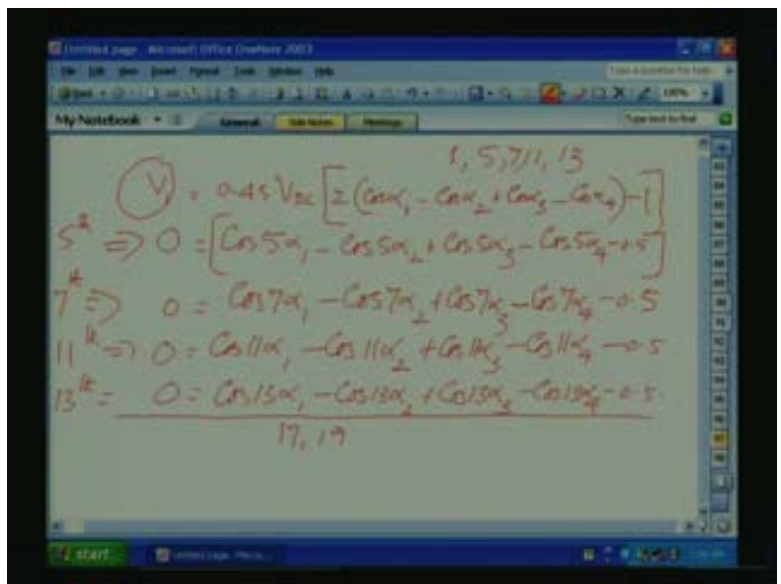 Untitled page - Microsoft Office OneNote 2003
File Edit View Insert Format Tools Window Help
Type a question for help
100%
My Notebook General Side Notes Meetings Type text to find
1, 5, 7, 11, 13
V₁ = 0.45 V_DC [2 (Cosα₁ - Cosα₂ + Cosα₃ - Cosα₄) - 1]
5th ⇒ 0 = [Cos5α₁ - Cos5α₂ + Cos5α₃ - Cos5α₄ - 0.5]
7th ⇒ 0 = Cos7α₁ - Cos7α₂ + Cos7α₃ - Cos7α₄ - 0.5
11th ⇒ 0 = Cos11α₁ - Cos11α₂ + Cos11α₃ - Cos11α₄ - 0.5
13th = 0 = Cos13α₁ - Cos13α₂ + Cos13α₃ - Cos13α₄ - 0.5
17, 19
start Untitled page - Micro...